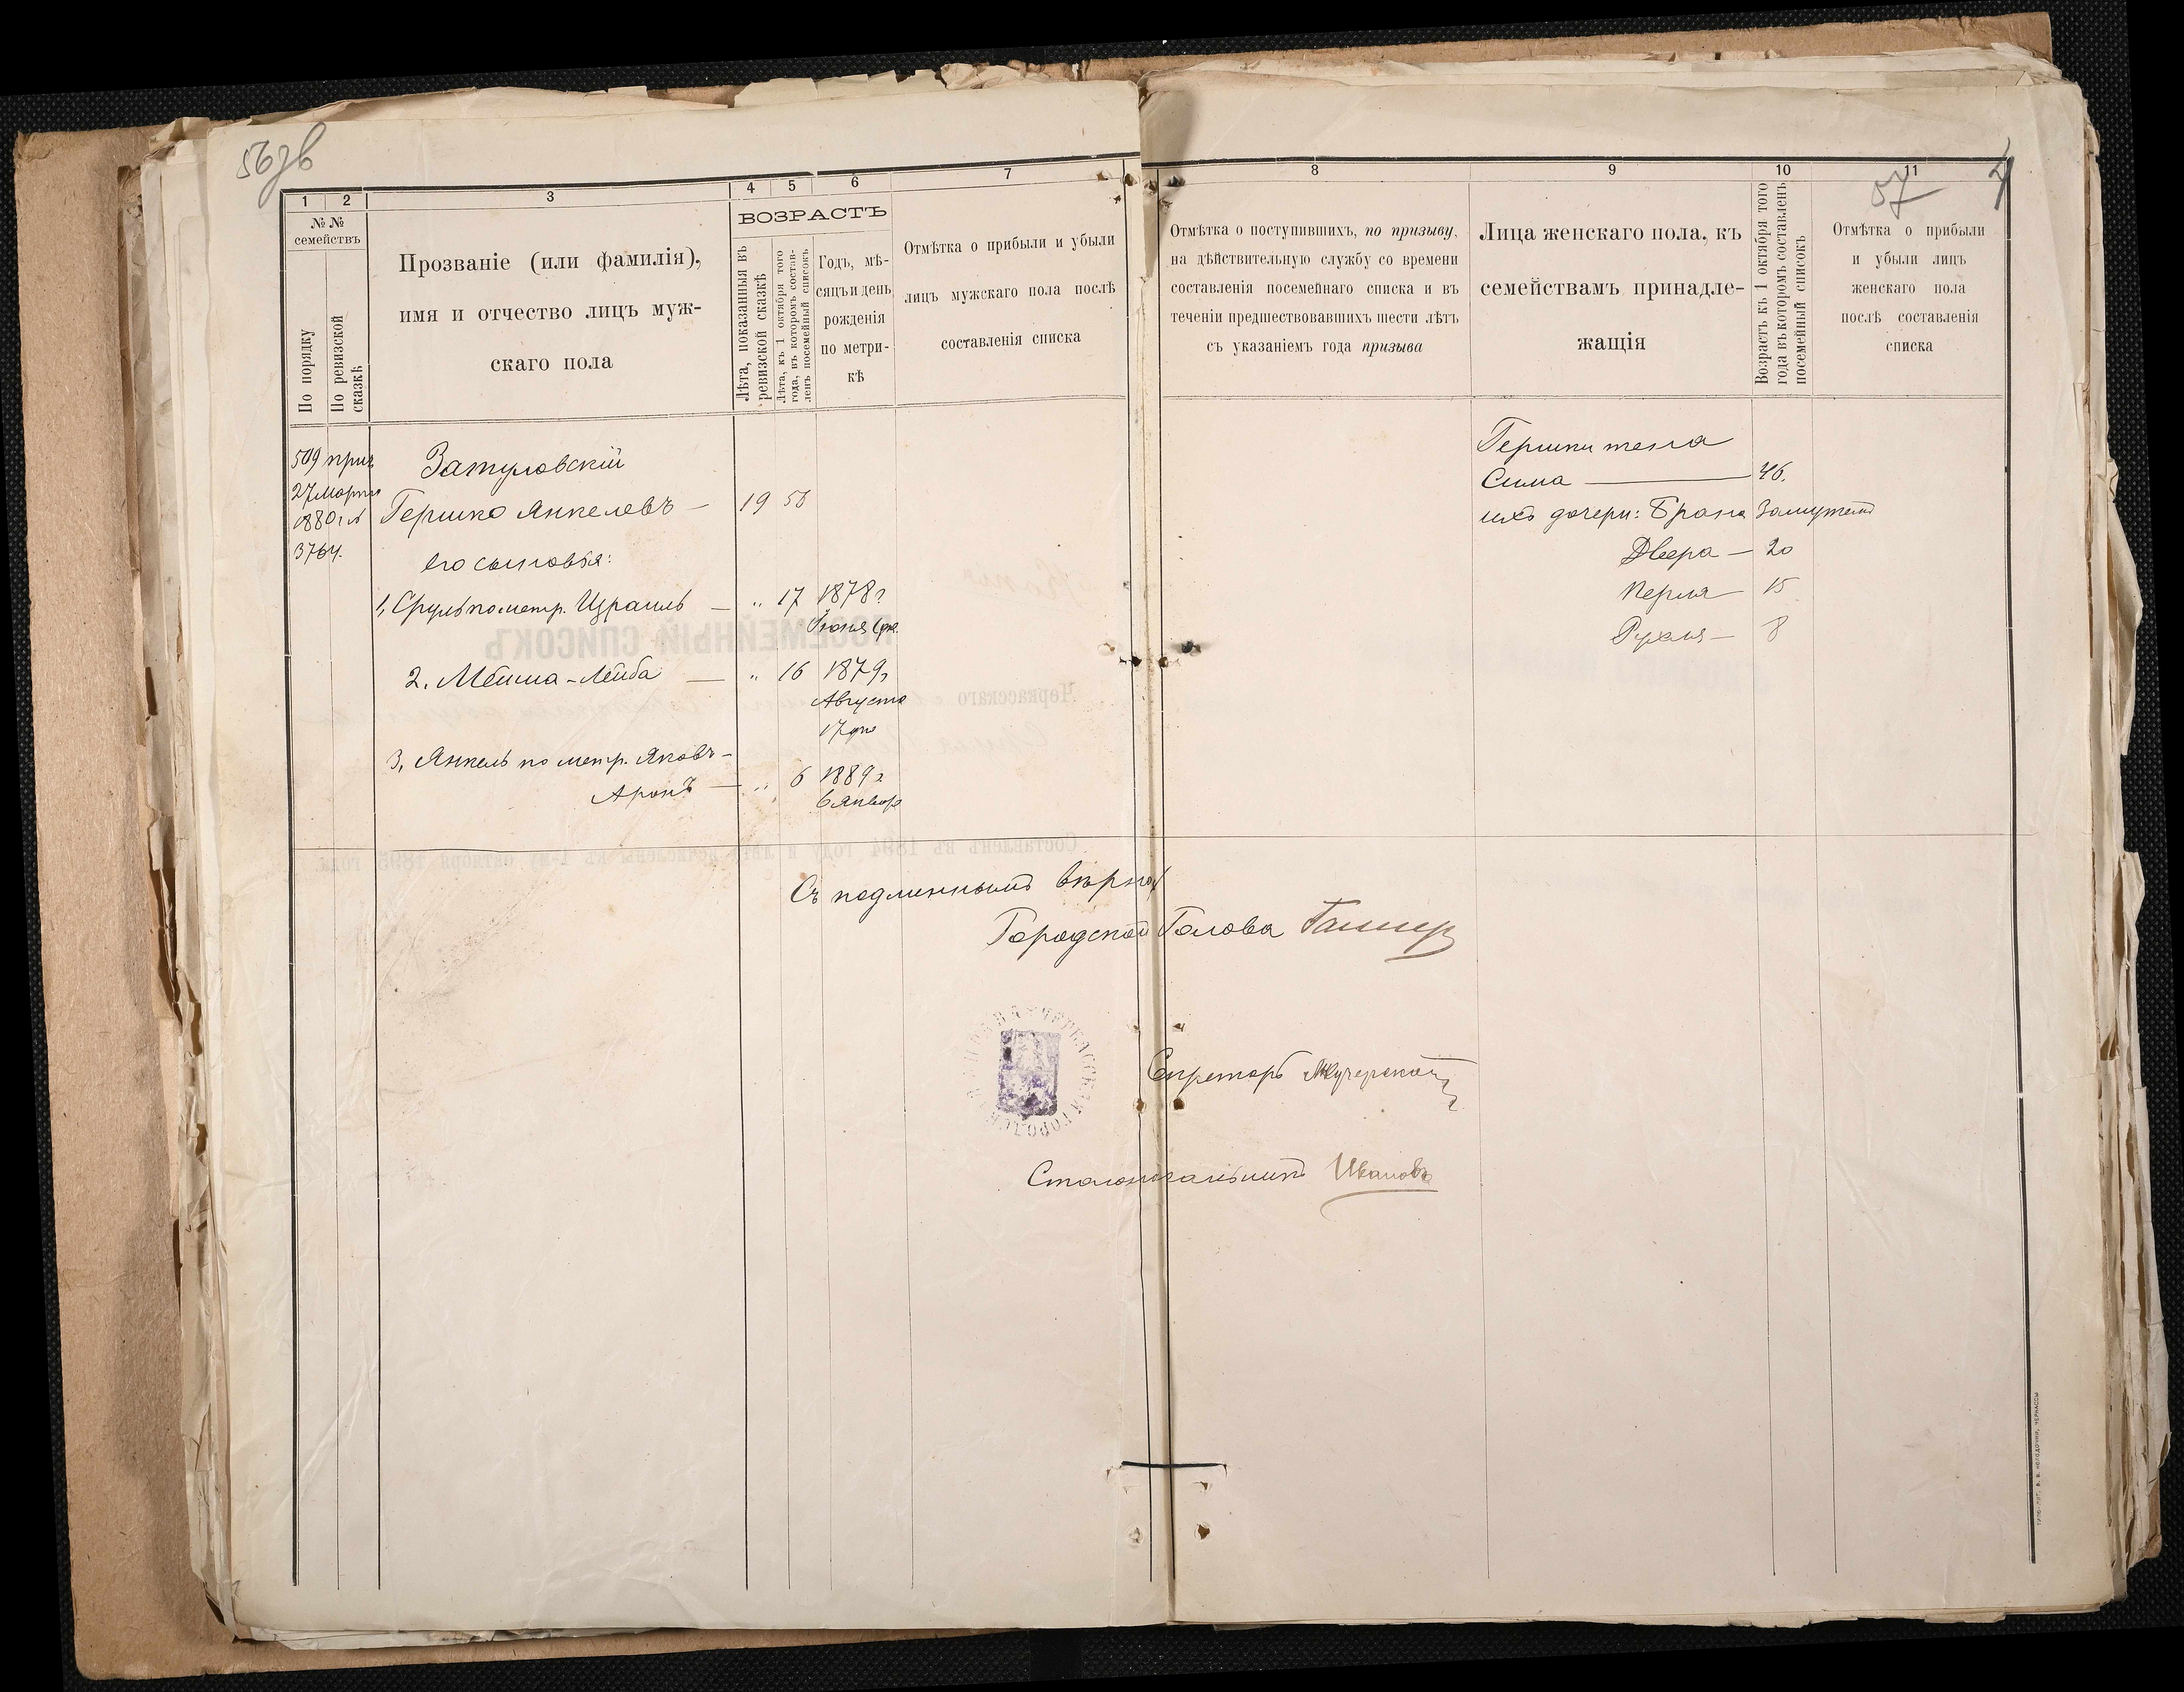 56зв
1 2 3 4 5 6 7
№№ семействъ
По порядку
По ревизской сказкѣ
Прозваніе (или фамилія),
имя и отчество лицъ муж-
скаго пола
ВОЗРАСТЪ
Лѣта, показанныя въ
ревизской сказкѣ
Лѣта, къ 1 октября того
года, въ которомъ состав-
ленъ посемейный списокъ
Годъ, мѣ-
сяцъ и день
рожденія
по метри-
кѣ
Отмѣтка о прибыли и убыли
лицъ мужскаго пола послѣ
составленія списка
509 прич
27 Марта
1880 г №
3764.
Затуловскій
Гершко Янкелевъ — 19 56
его сыновья:
1, Сруль по метр. Израиль — " 17 1878 г
Іюня
2. Мошка-Лейба — " 16 1879 г
Августа
17 дня
3, Янкель по метр. Яковъ-
Аронъ — " 6 1889 г
6 Январ
8 9 10 11
57
4
Отмѣтка о поступившихъ, по призыву,
на дѣйствительную службу со времени
составленія посемейнаго списка и въ
теченіи предшествовавшихъ шести лѣтъ
съ указаніемъ года призыва
Лица женскаго пола, къ
семействамъ принадле-
жащія
Возрастъ къ 1 октября того
года въ которомъ составленъ
посемейный списокъ
Отмѣтка о прибыли
и убыли лицъ
женскаго пола
послѣ составленія
списка
Гершки жена
Сима — 46.
ихъ дочери: Брана Замужемъ
Двера — 20
Перля — 15
Рухля — 8
Съ подлиннымъ вѣрно:
Городской Голова
Секретарь
Столоначальникъ Ивановъ
ЧЕРКАССКАЯ ГОРОДСКАЯ УПРАВА
ПОСЕМЕЙНЫЙ СПИСОКЪ
Черкасскаго
Составленъ въ 1894 году и лѣта исчислены къ 1-му октября 1895 года
ТИПО-ЛИТ. В. В. КОЛОДОЧКИ, ЧЕРКАССЫ